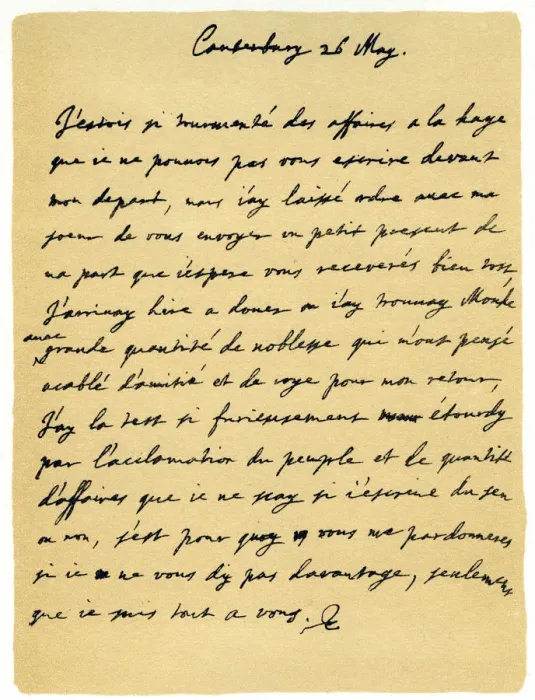 Canterbury 26 May.
J'estois si tourmenté des affaires a la haye
que ie ne pouuois pas vous escrire devant
mon depart, mais i'ay laissé ordre auec ma
soeur de vous envoyer un petit present de
ma part que i'espere vous receverés bien tost
J'arrivay hier a douer ou i'ay trouvay Monke
auec
grande quantité de noblesse qui m'ont pensé
acablé d'amitié et de joye pour mon retour,
J'ay la test si furieusement étourdy
par l'acclamation du peuple et le quantité
d'affaires que ie ne scay si i'escrive du sen
ou non, s'est pour quoy vous me pardonneres
si ie ne vous dy pas davantage, seulement
que ie suis tout a vous.